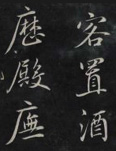 客置酒
歷殿廡